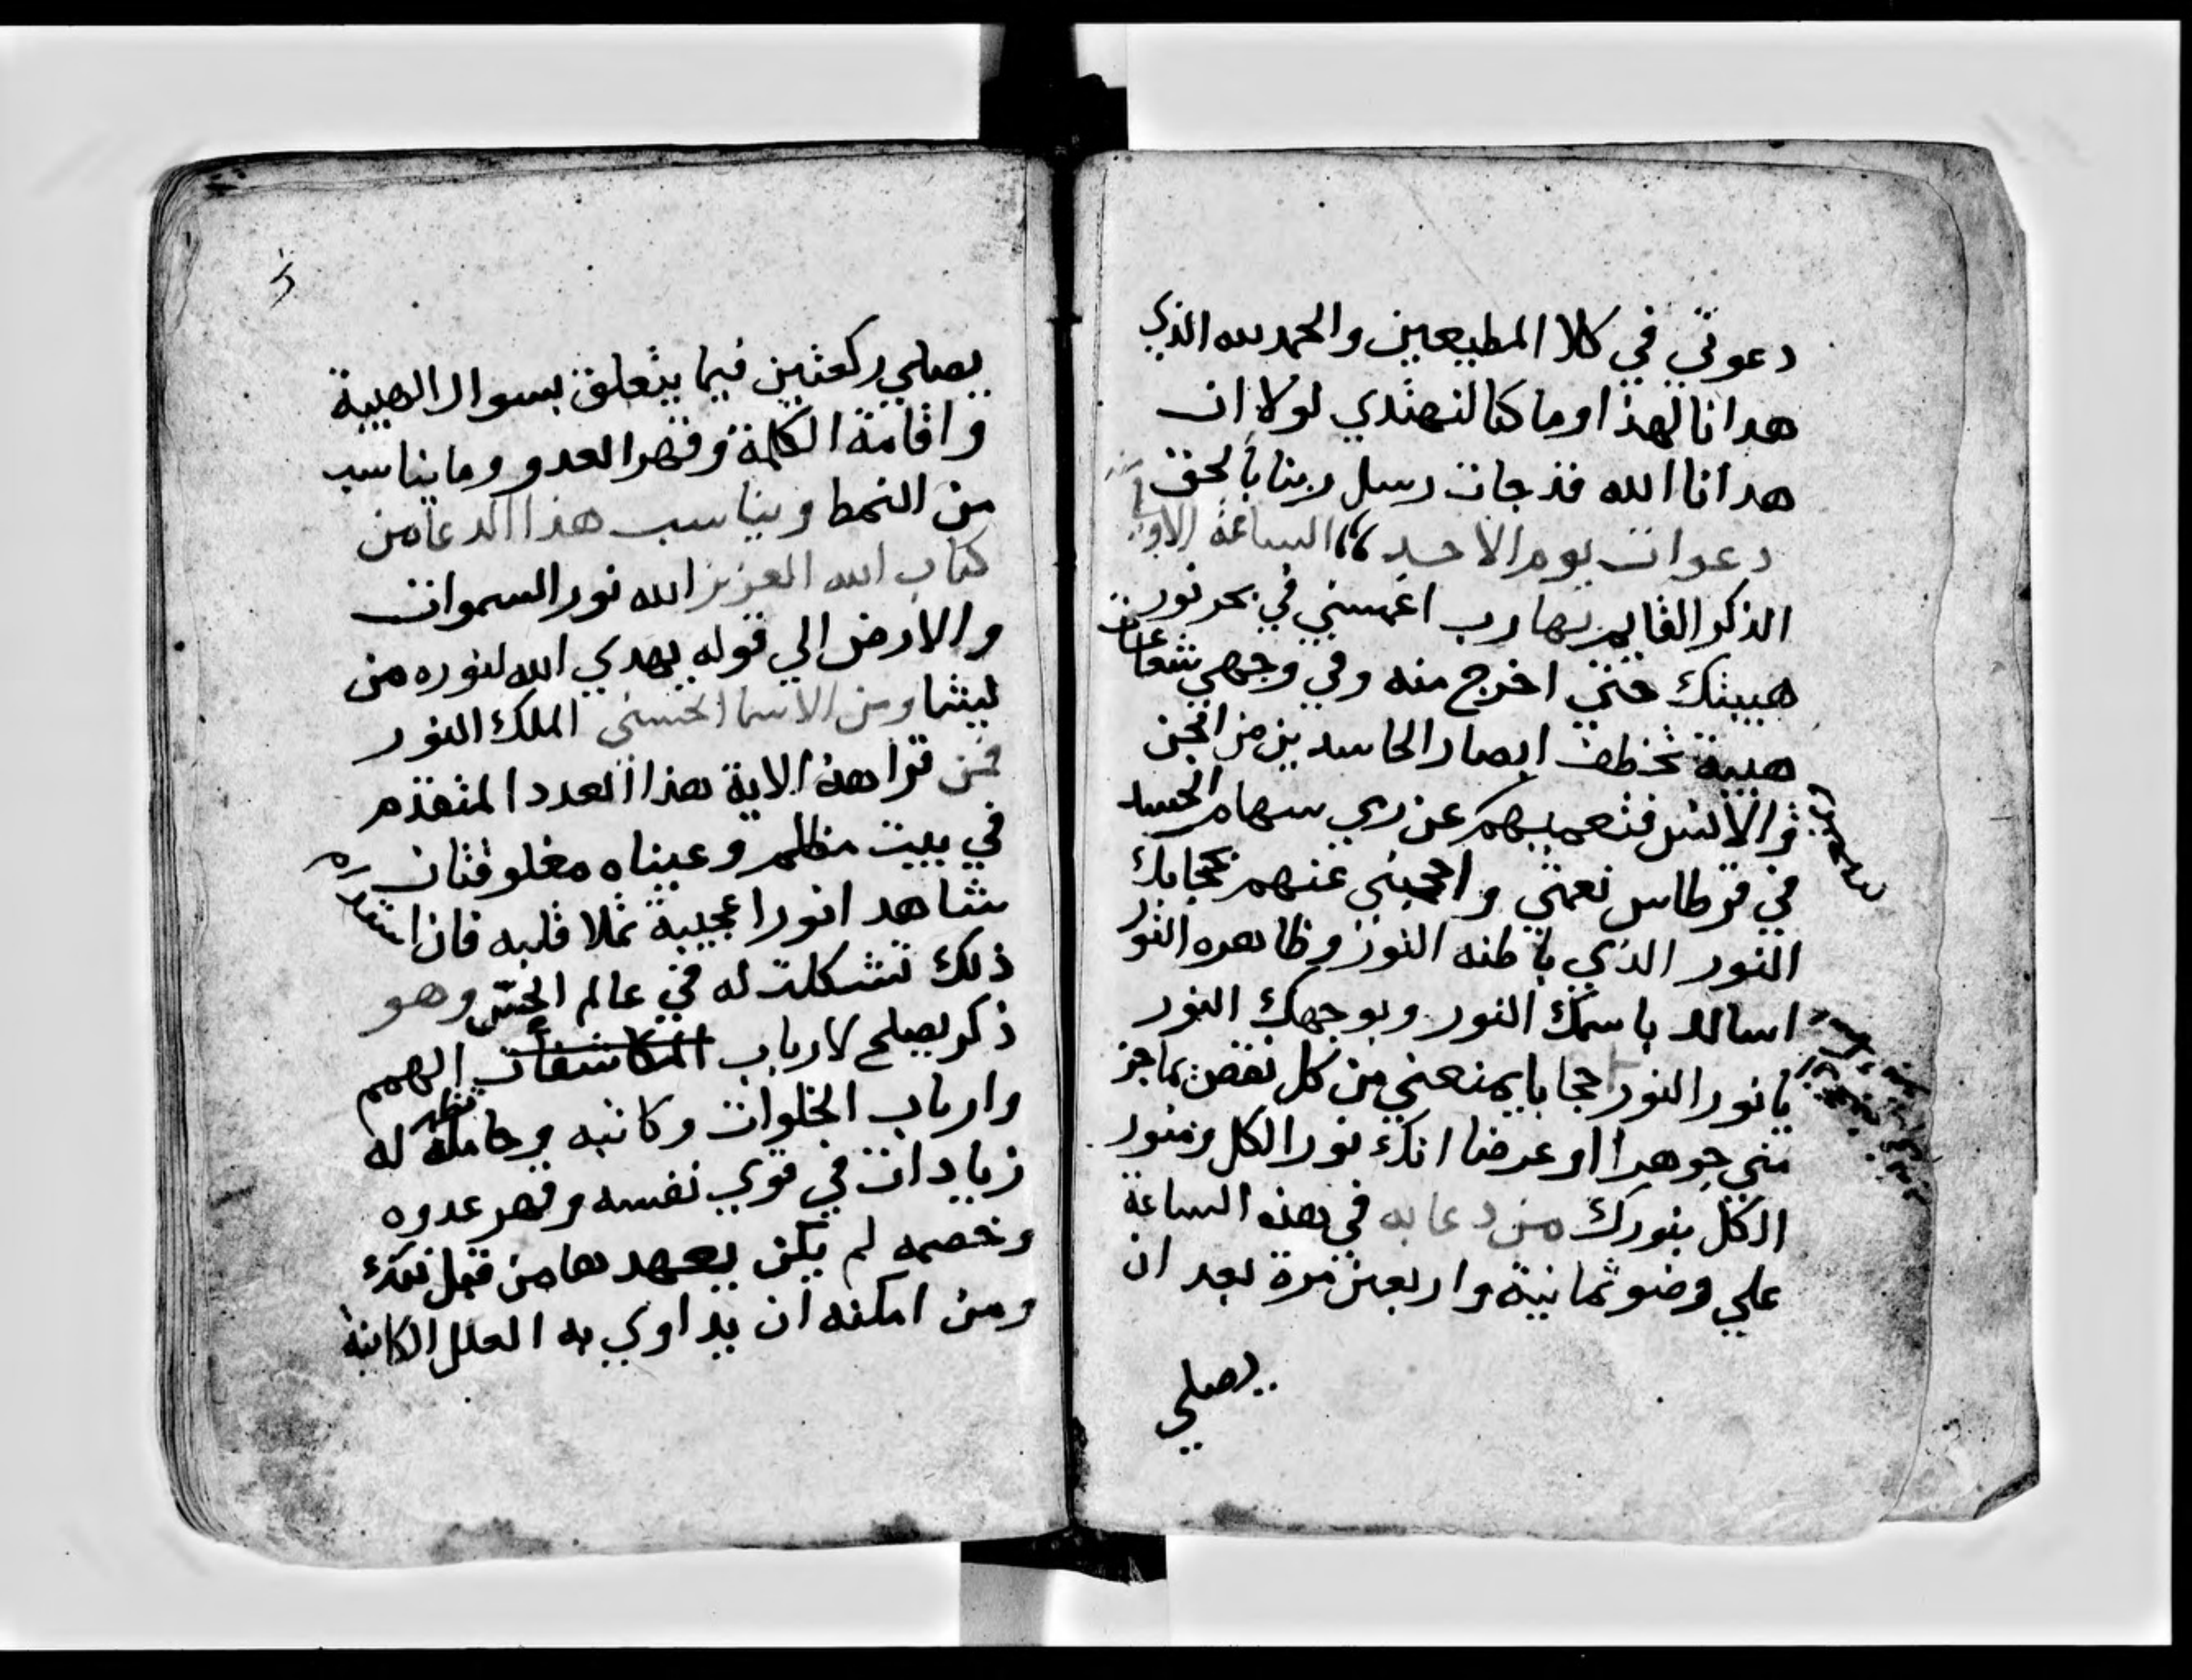 دعوتي في كلا المطيعين والحمد لله الذي
هدانا لهذا وما كنا لنهتدي لولا ان
هدانا الله قد جات رسل ربنا بالحق
دعوات يوم الاحد الساعة الاولي
الذكر القايم بها رب اغمسني في بحر نور
هيبتك حتي اخرج منه وفي وجهي شعاعات
هيبة تخطف ابصار الحاسدين من الجن
والانس فتعميهم عن رمي سهام الحسد
في قرطاس نعمتي واحجبني عنهم بحجابك
النور الذي باطنه النور وظاهره النور
اسالك باسمك النور وبوجهك النور
يا نور النور حجابا يمنعني من كل نقص يمازج
مني جوهرا او عرضا انك نور الكل ومنور
الكل بنورك من دعا به في هذه الساعة
علي وضو ثمانية واربعين مرة بعد ان
يصلي
يصلي ركعتين فيما يتعلق بسوال الهيبة
واقامة الكلمة وقهر العدو وما يناسب
من النمط ويناسب هذا الدعا من
كتاب الله العزيز الله نور السموات
والارض الي قوله يهدي الله لنوره من
يشا ومن الاسما الحسني الملك النور
فمن قرا هذه الاية هذا العدد المتقدم
في بيت مظلم وعيناه مغلوقتان
شاهد انورا عجيبة تملا قلبه فان استداره
ذلك تشكلت له في عالم الحس وهو
ذكر يصلح لارباب المكاشفات الهمم
وارباب الخلوات وكاتبه وحامله تظهر له
زيادات في قوي نفسه وقهر عدوه
وخصمه لم يكن يعهدها من قبل ذلك
ومن امكنه ان يداوي به العلل الكاينة